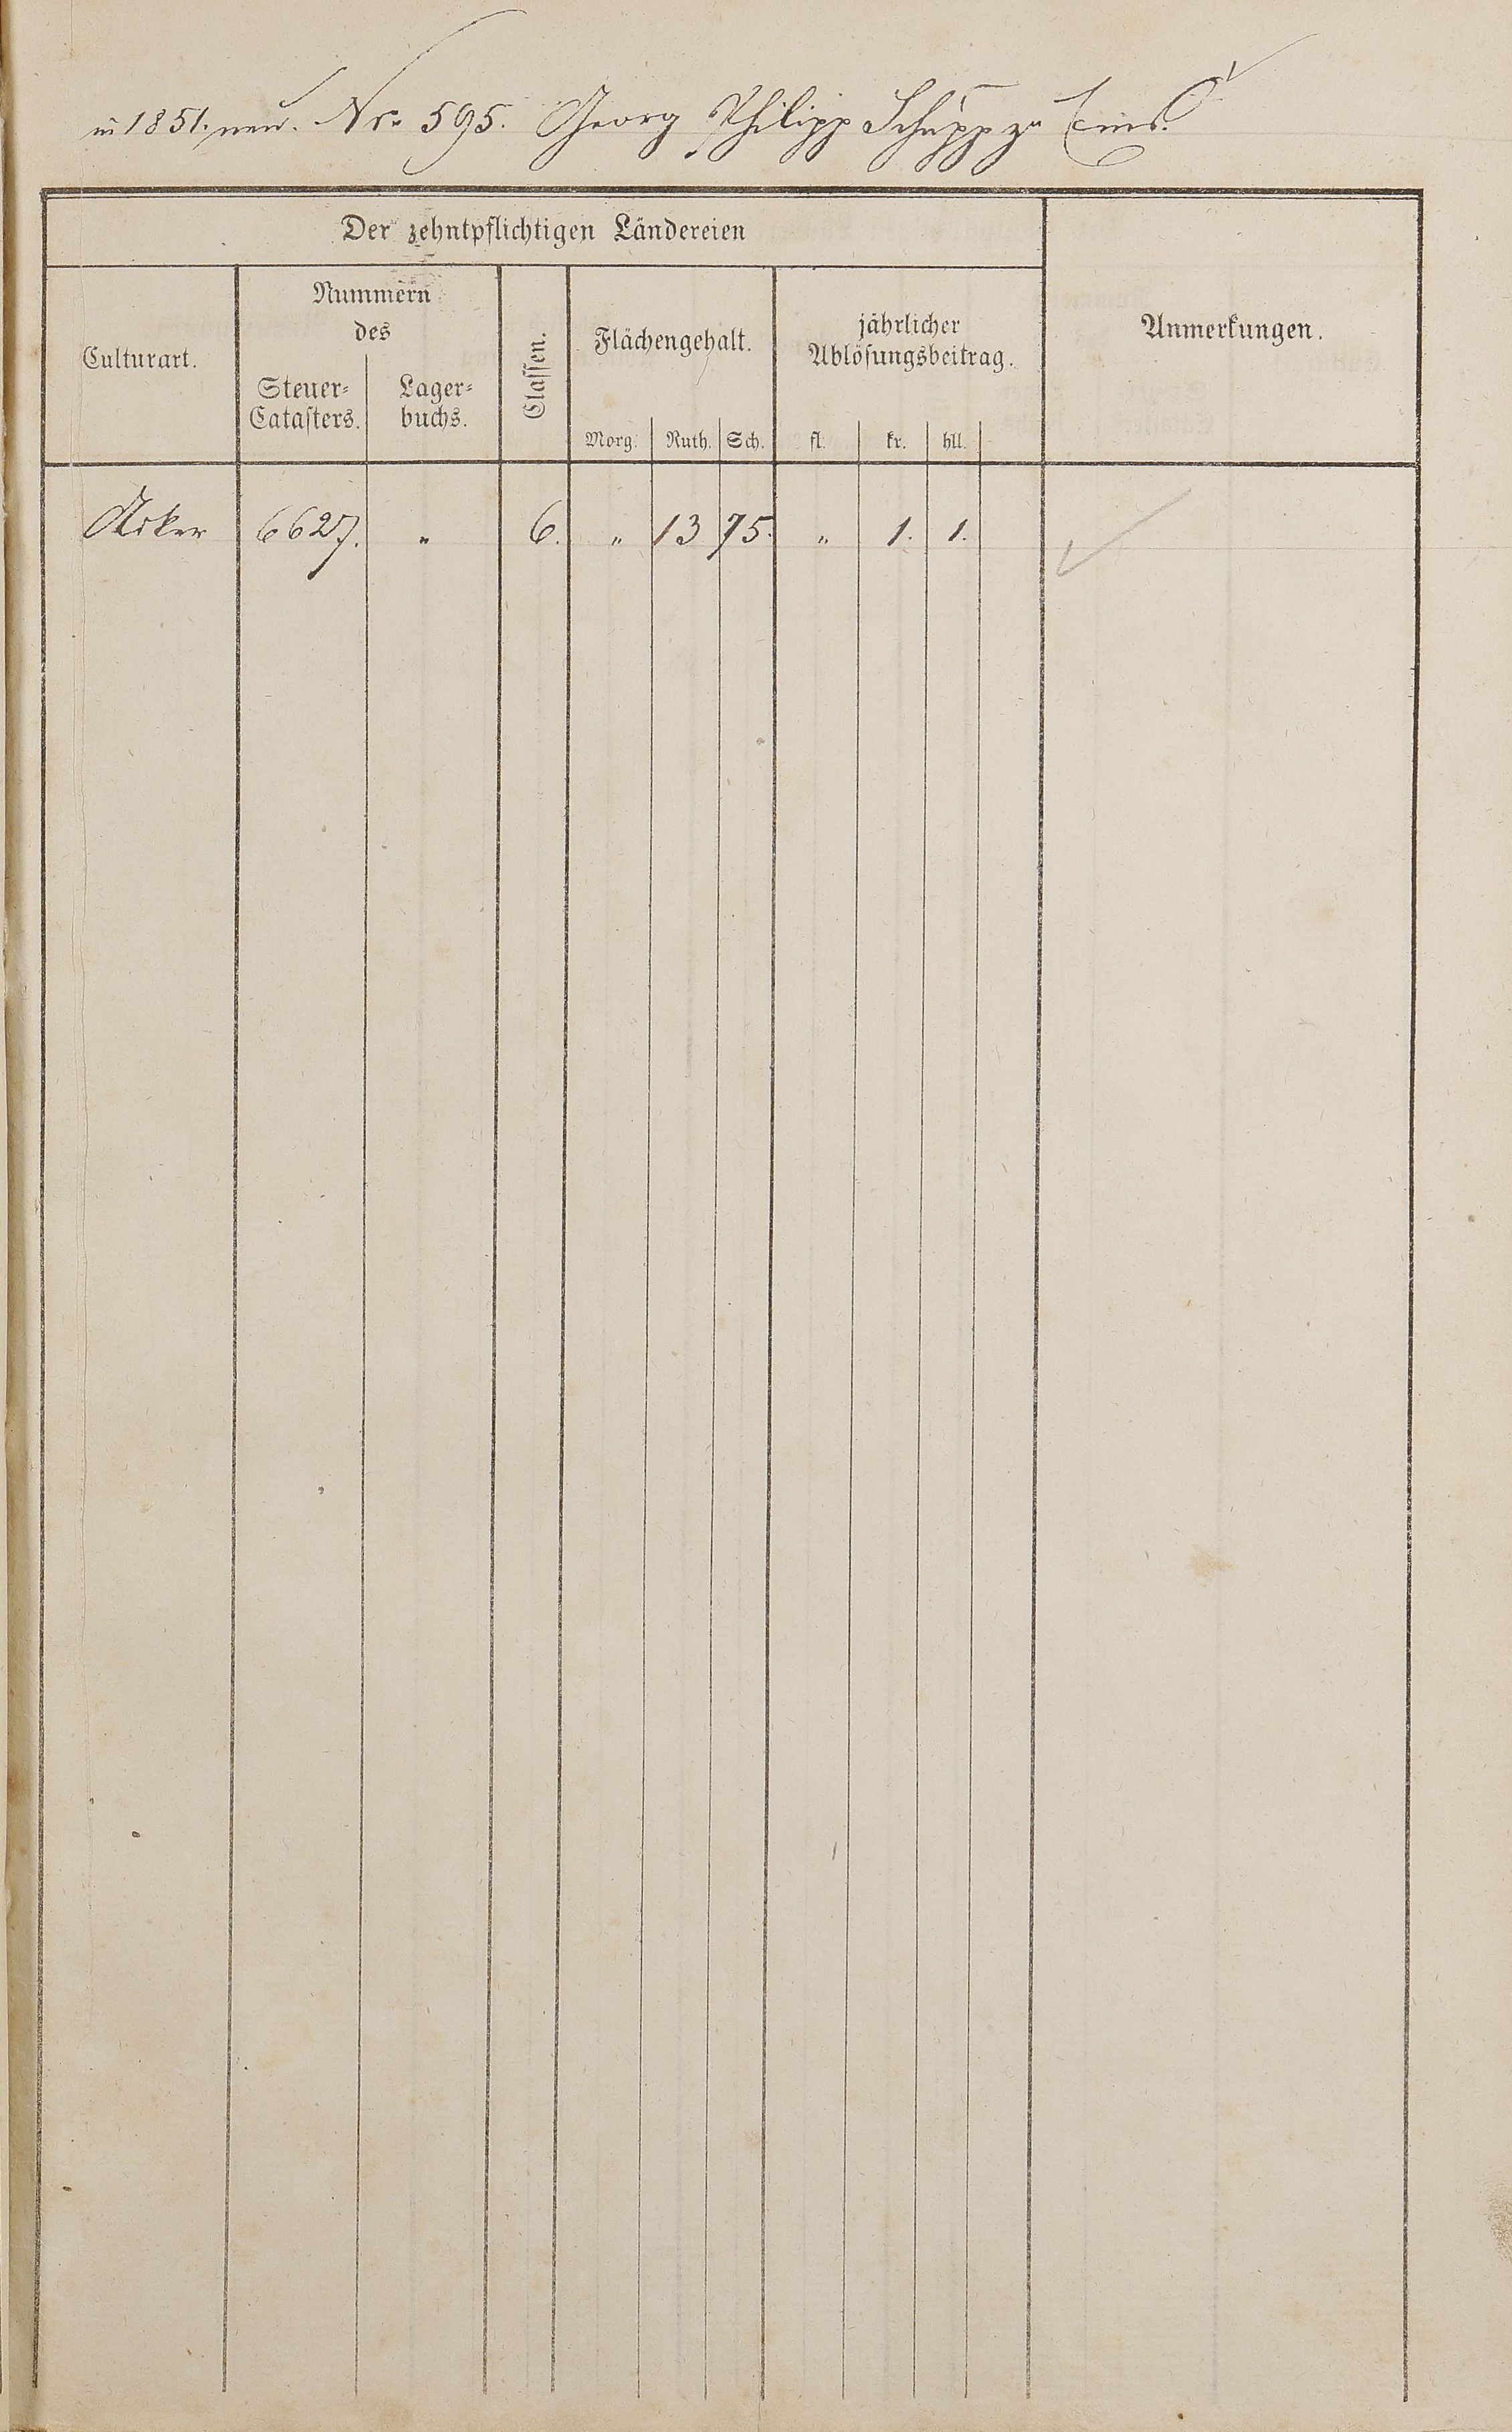 in 1851. neu. Nr. 595. Georg Philipp Schupp zu Ems.
Der zehntpflichtigen Ländereien
Culturart.
Nummern
des
Steuer=
Catasters.
Lager=
buchs.
Classen.
Flächengehalt.
Morg. Ruth. Sch.
jährlicher
Ablösungsbeitrag.
fl. kr. hll.
Anmerkungen.
Acker 6627. " 6. " 13 75. " 1. 1.